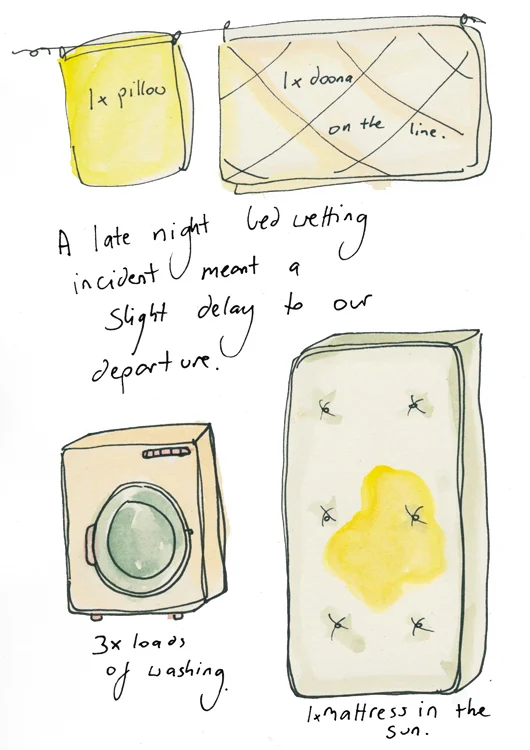 1x pillow
1x doona
on the line.
A late night bed wetting
incident meant a
slight delay to our
departure.
3x loads
of washing.
1x mattress in the
sun.